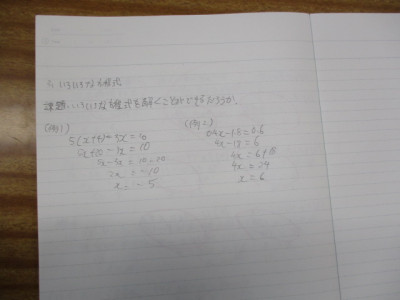 いろいろな方程式
課題、いろいろな方程式を解くことができるだろうか。
(例1)
= 10
5x - 3x = 10 - 20
2x = -10
x = - 5
(例2)
0.4x - 1.8 = 0.6
4x - 18 = 6
4x = 6 + 18
4x = 24
x = 6